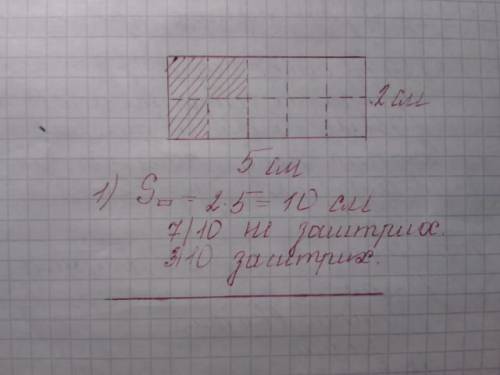 2 см
5 см
1) S▭ = 2·5 = 10 см
7/10 не заштрих.
3/10 заштрих.